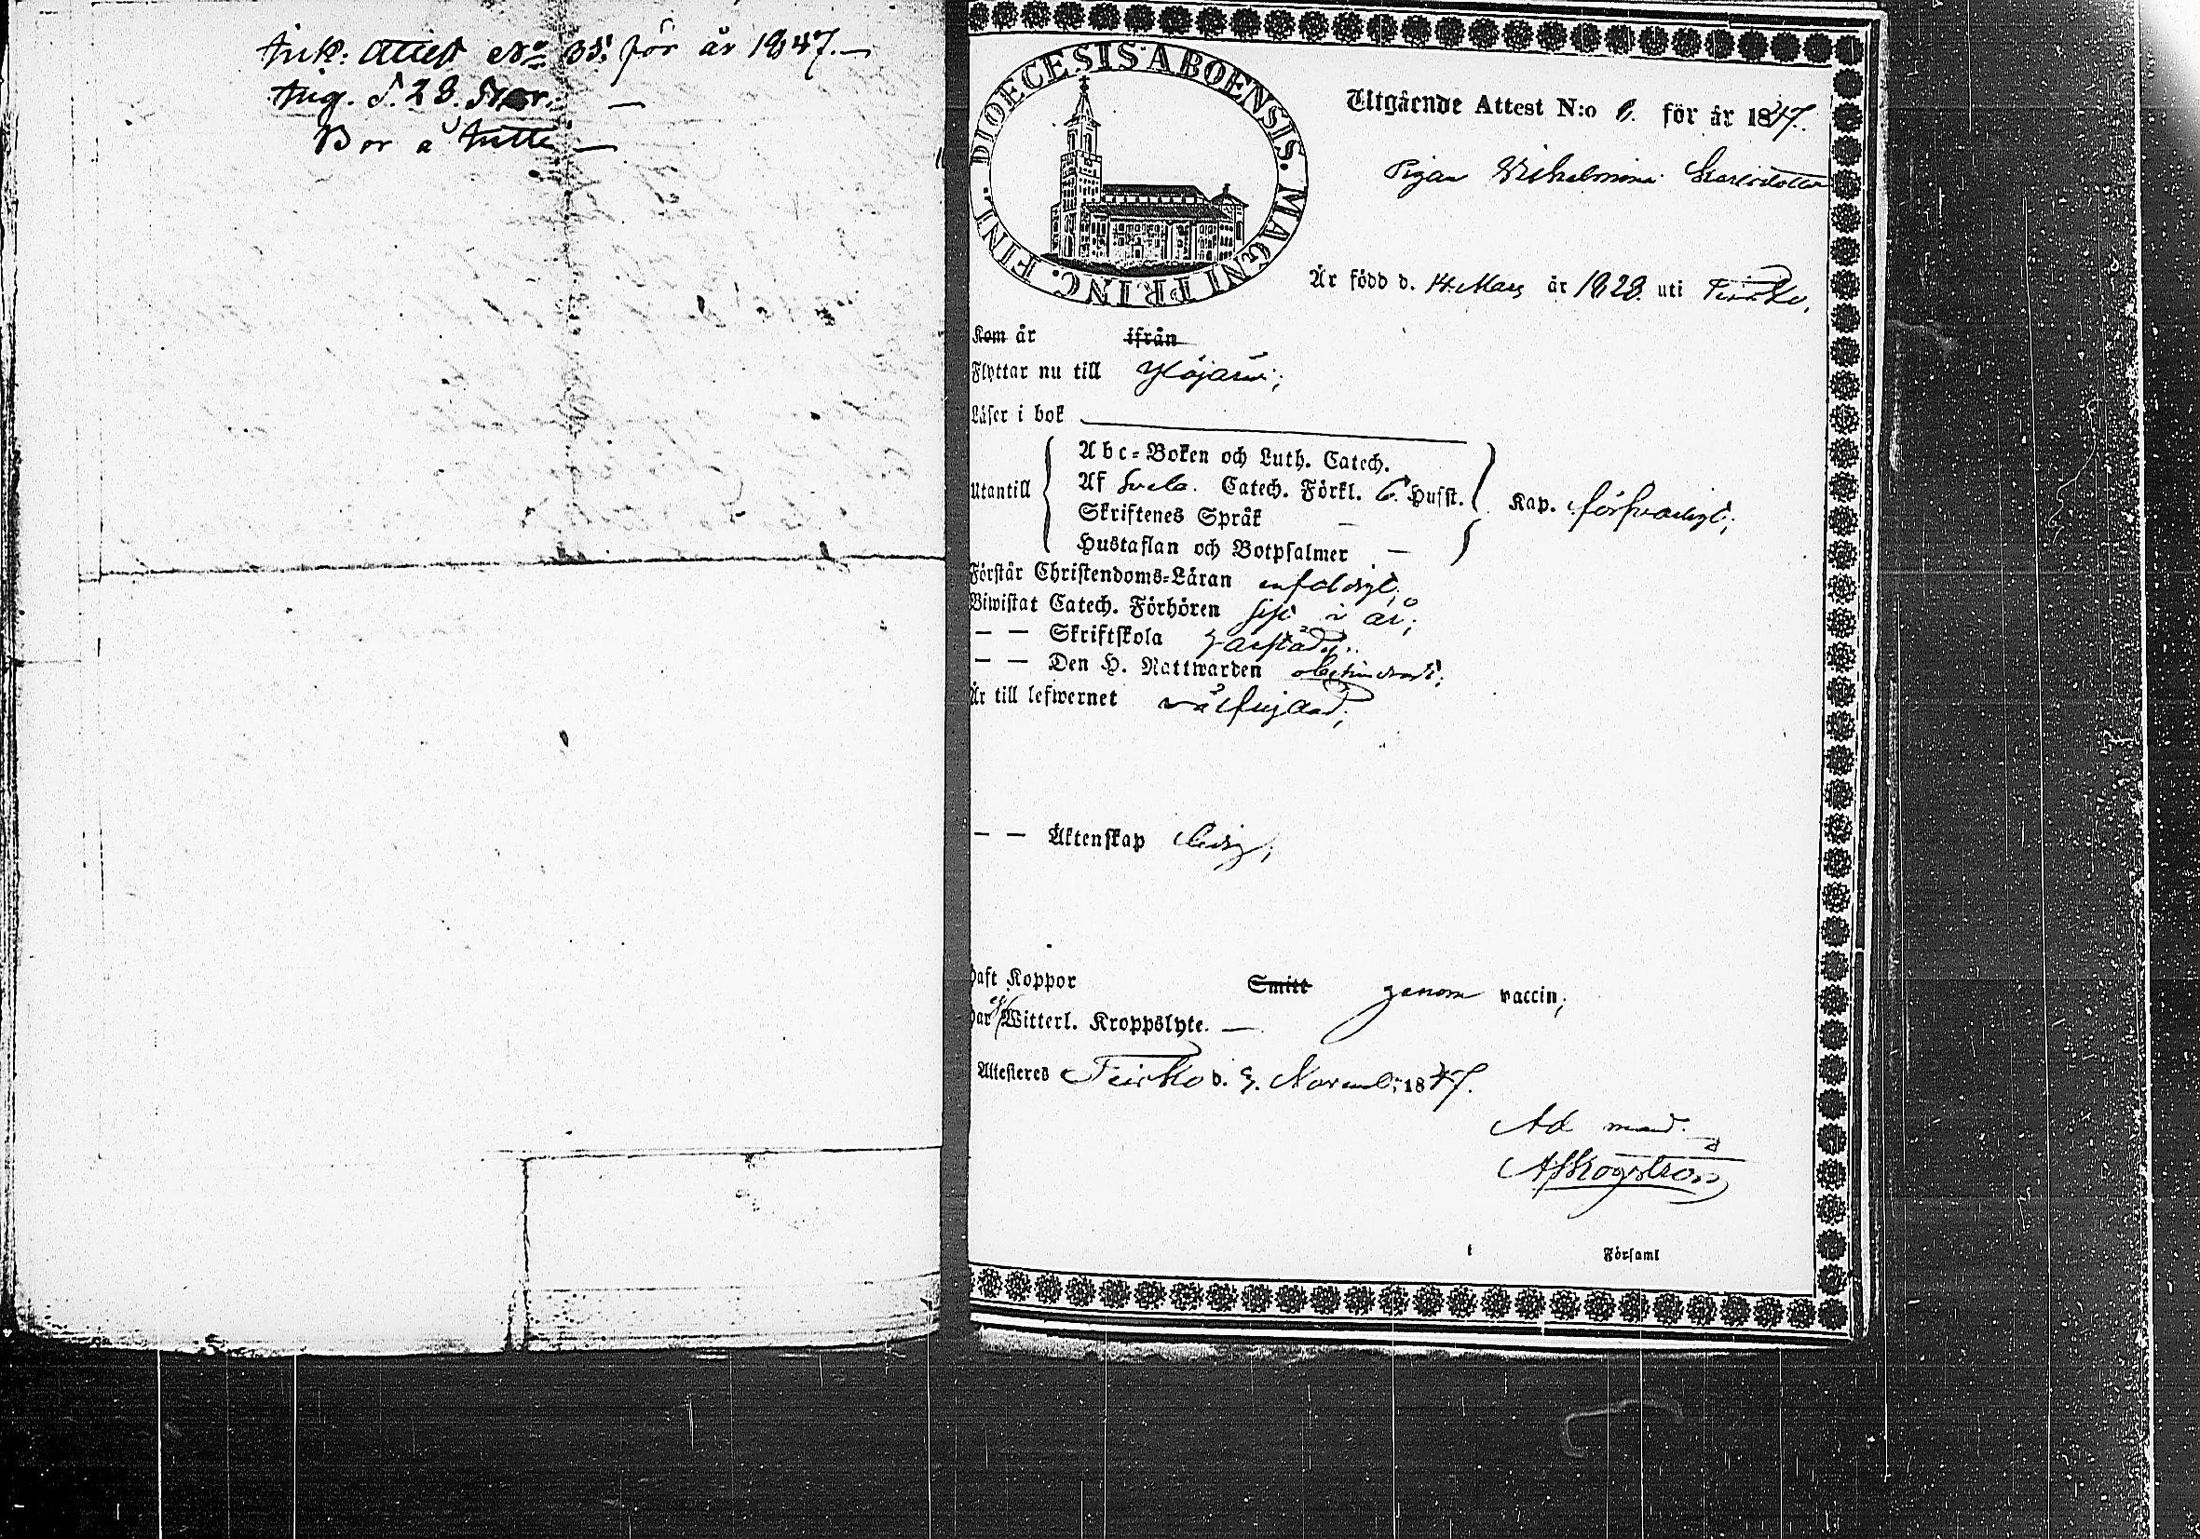 Ink: Attest No 35. för år 1847.—
Ang. d. 28. Nov. —
Bor å —
DIOECESIS ABOENSIS. MAGNI PRINC. FINL.
Utgående Attest N:o 6. för år 1847.
Pigan Wilhelmina Karlsdotter
Är född d. 14 Mars år 1828. uti Teisko,
Kom år ifrån
Flyttar nu till Ylöjärvi;
Läser i bok
Utantill
Abc-Boken och Luth. Catech.
Af Sveb. Catech. Förkl. 6. Husst.
Skriftenes Språk —
Hustaflan och Botpsalmer —
Kap. försvarligt;
Förstår Christendoms-Läran enfaldigt;
Biwistat Catech. Förhören sist i år;
— — Skriftskola
— — Den H. Nattwarden obehindradt;
Är till lefwernet välfrejdad;
— — Äktenskap ledig;
Haft Koppor Smitt genom vaccin;
Har ej Witterl. Kroppslyte. —
Attesteres Teisko d. 9. Novemb: 1847.
Ad mand.
A Skogström
Församl